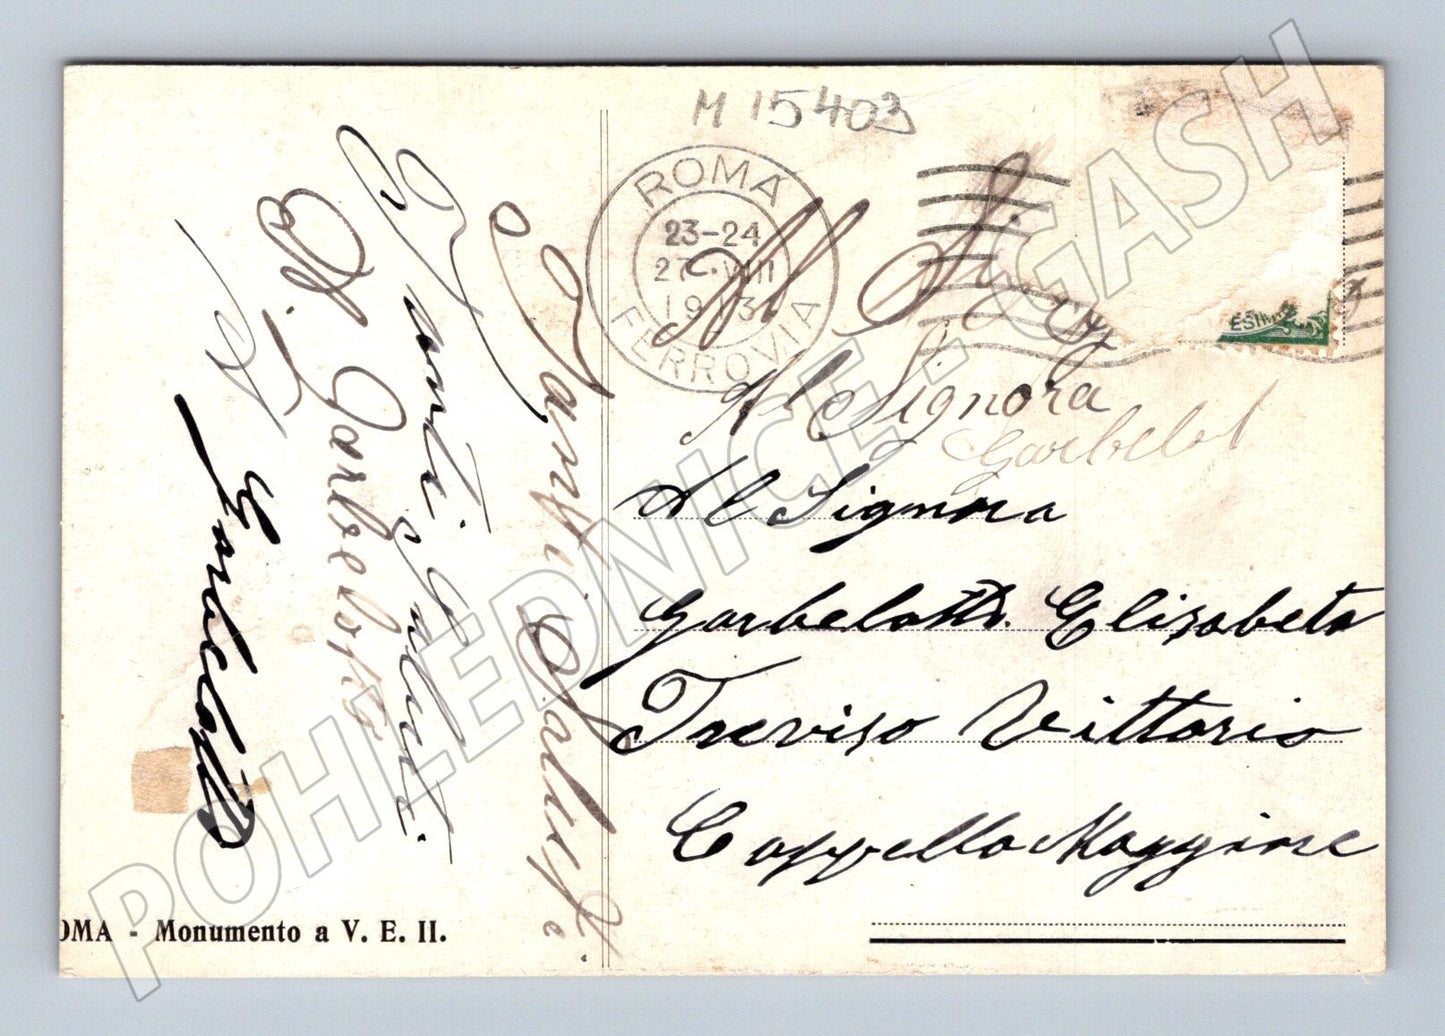 M 15403
ROMA
23-24
27·VIII
1913
FERROVIA
Al Si
Al Signora
Garbelot
Al Signora
Garbelotti Elisabeta
Treviso Vittorio
Cappella Maggiore
Tanti Saluti
Tanti Saluti
Garbelotto
Garbelotto
OMA - Monumento a V. E. II.
POHLEDNICE - GASH